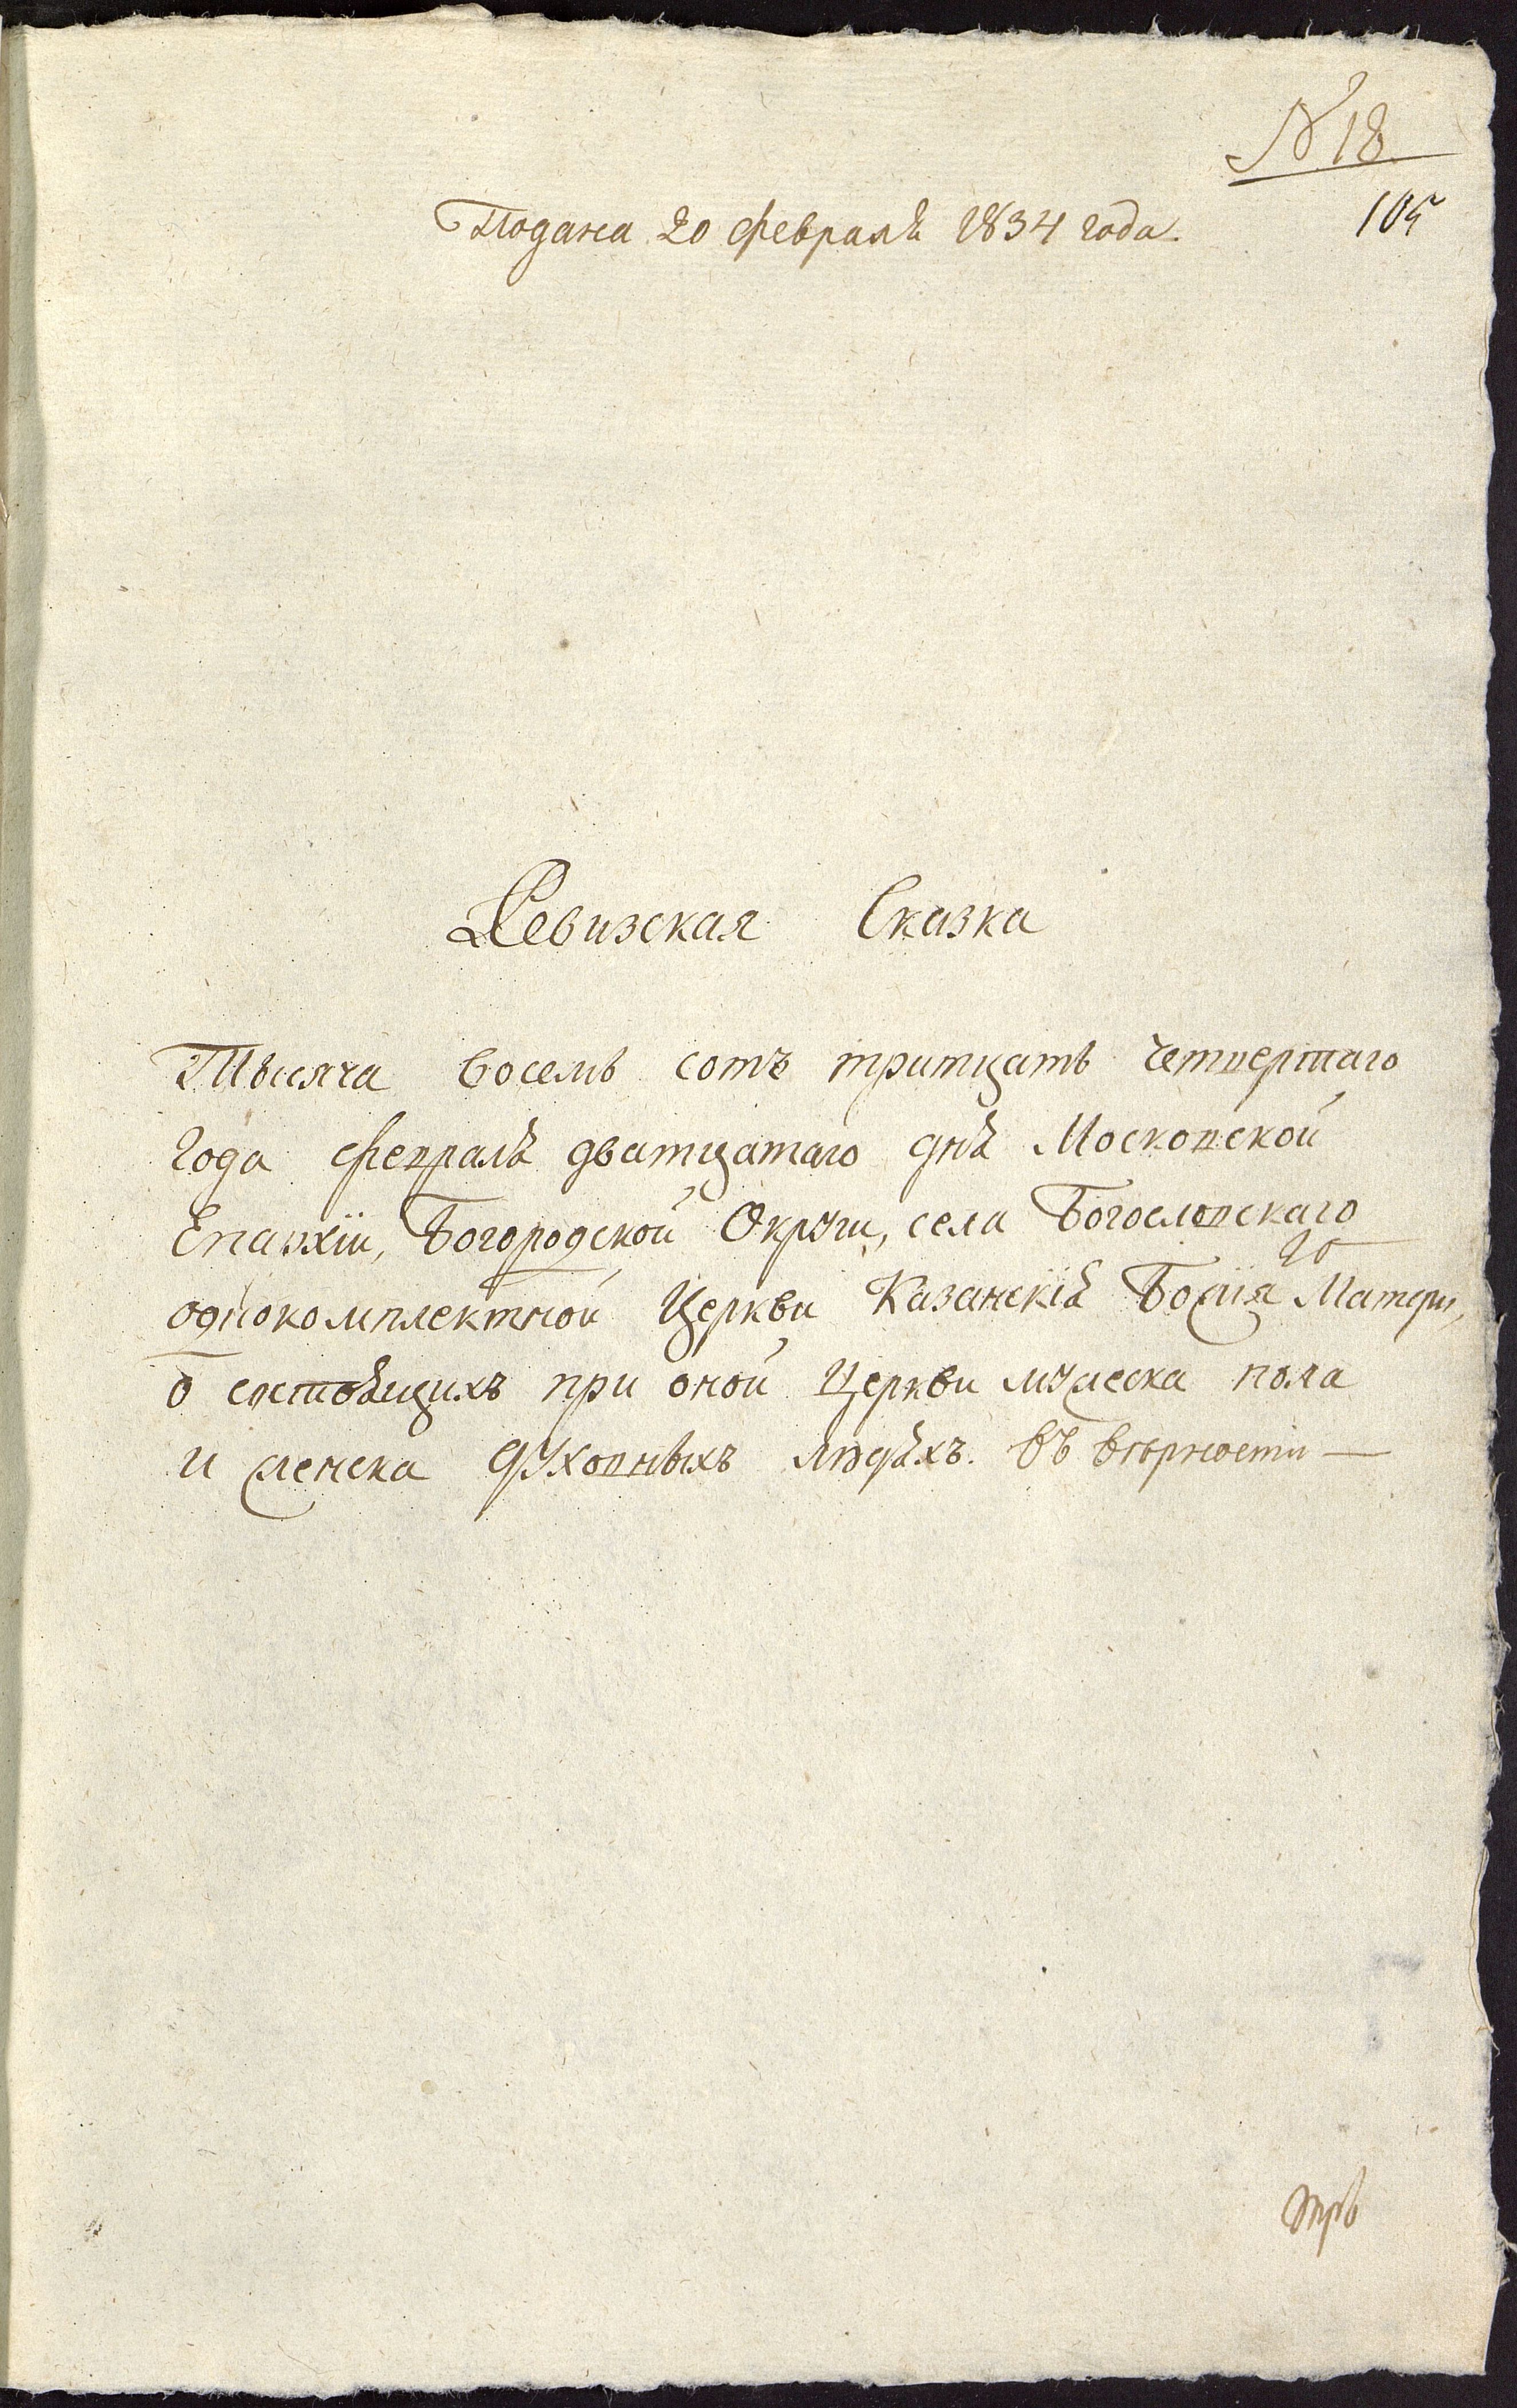 N 18
105
Подана 20 февраля 1834 года.
Ревизская Сказка
Тысяча восемь сотъ тритцать четвертаго
года февраля дватцатаго дня Московской
Епархіи, Богородской Округи, села Богословскаго
однокомплектной Церкви Казанскія Божія Матери,
о состоящихъ при оной Церкви мужеска пола
и женска духовныхъ людяхъ. Въ верности —